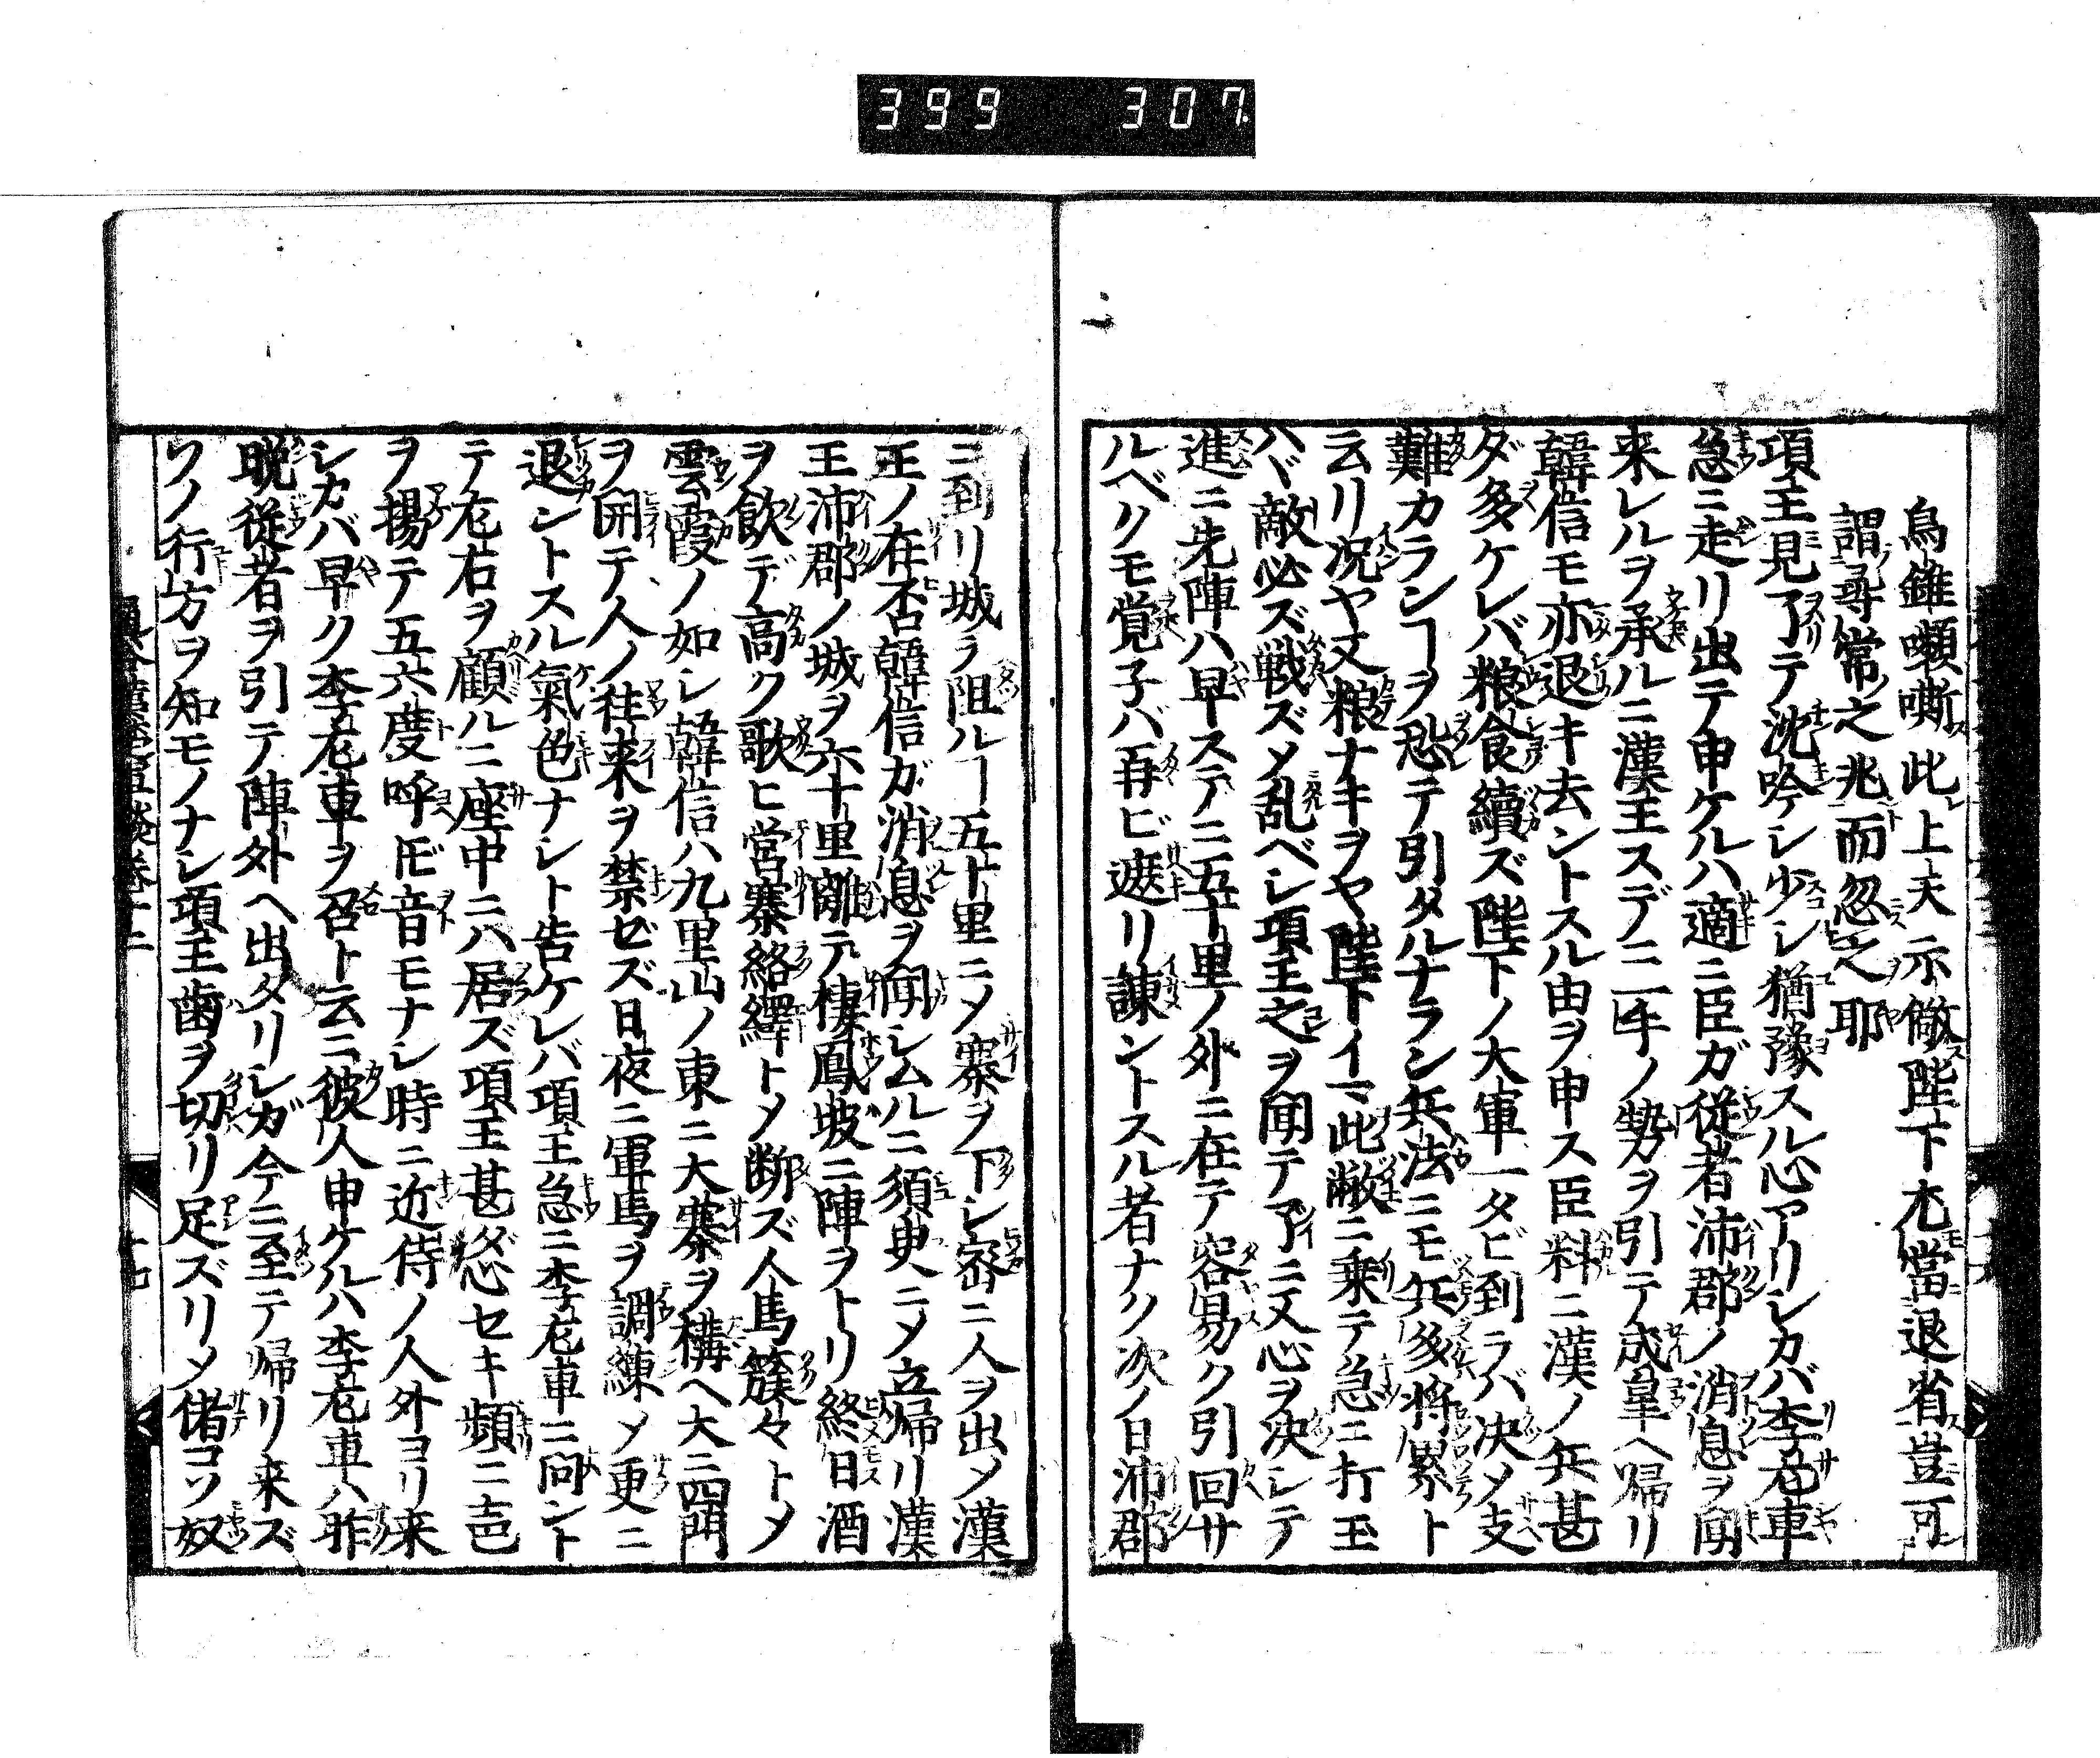 399 307
烏騅嚬嘶此上天示儆陛下尤當退省豈可
謂尋常之兆而忽之耶
項王見了テ沈吟シ少シ猶豫スル心アリシカバ李左車
急ニ走リ出テ申ケルハ適ニ臣ガ従者沛郡ノ消息ヲ聞
来レルヲ承ルニ漢王スデニ一手ノ勢ヲ引テ成皐ヘ帰リ
韓信モ亦退キ去ントスル由ヲ申ス臣料ニ漢ノ兵甚
ダ多ケレバ粮食續ズ陛下ノ大軍一タビ到ラバ决メ支
難カランヿヲ恐テ引タルナラン兵法ニモ兵多将累ト
云リ况ヤ又粮ナキヲヤ陛下イマ此敝ニ乗テ急ニ打玉
ハヾ敵必ズ戦ズメ乱ベシ項王之ヲ聞テ了ニ又心ヲ決シテ
進ニ先陣ハ早ステニ五十里ノ外ニ在テ容易ク引回サ
ルベクモ覚子バ再ビ遮リ諫ントスル者ナク次ノ日沛郡
ニ到リ城ヲ阻ルヿ五十里ニメ寨ヲ下シ密ニ人ヲ出メ漢
王ノ在否韓信ガ消息ヲ聞シムルニ須臾ニメ立帰リ漢
王沛郡ノ城ヲ六十里離テ棲鳳坡ニ陣ヲトリ終日酒
ヲ飲デ高ク歌ヒ営寨絡繹トメ断ズ人馬簇々トメ
雲霞ノ如シ韓信ハ九里山ノ東ニ大寨ヲ構ヘ大ニ四門
ヲ開テ人ノ往来ヲ禁ゼズ日夜ニ軍馬ヲ調練メ更ニ
退ントスル氣色ナシト告ケレバ項王急ニ李左車ニ問ント
テ左右ヲ顧ルニ座中ニハ居ズ項王甚ダ忿セキ頻ニ声
ヲ揚テ五六度呼𪜈音モナシ時ニ近侍ノ人外ヨリ来
シカバ早ク李左車ヲ召ト云ニ彼人申ケルハ李左車ハ昨
晩従者ヲ引テ陣外ヘ出タリシガ今ニ至テ帰リ来ズ
ワノ行方ヲ知モノナシ項王歯ヲ切リ足ズリメ偖コソ奴